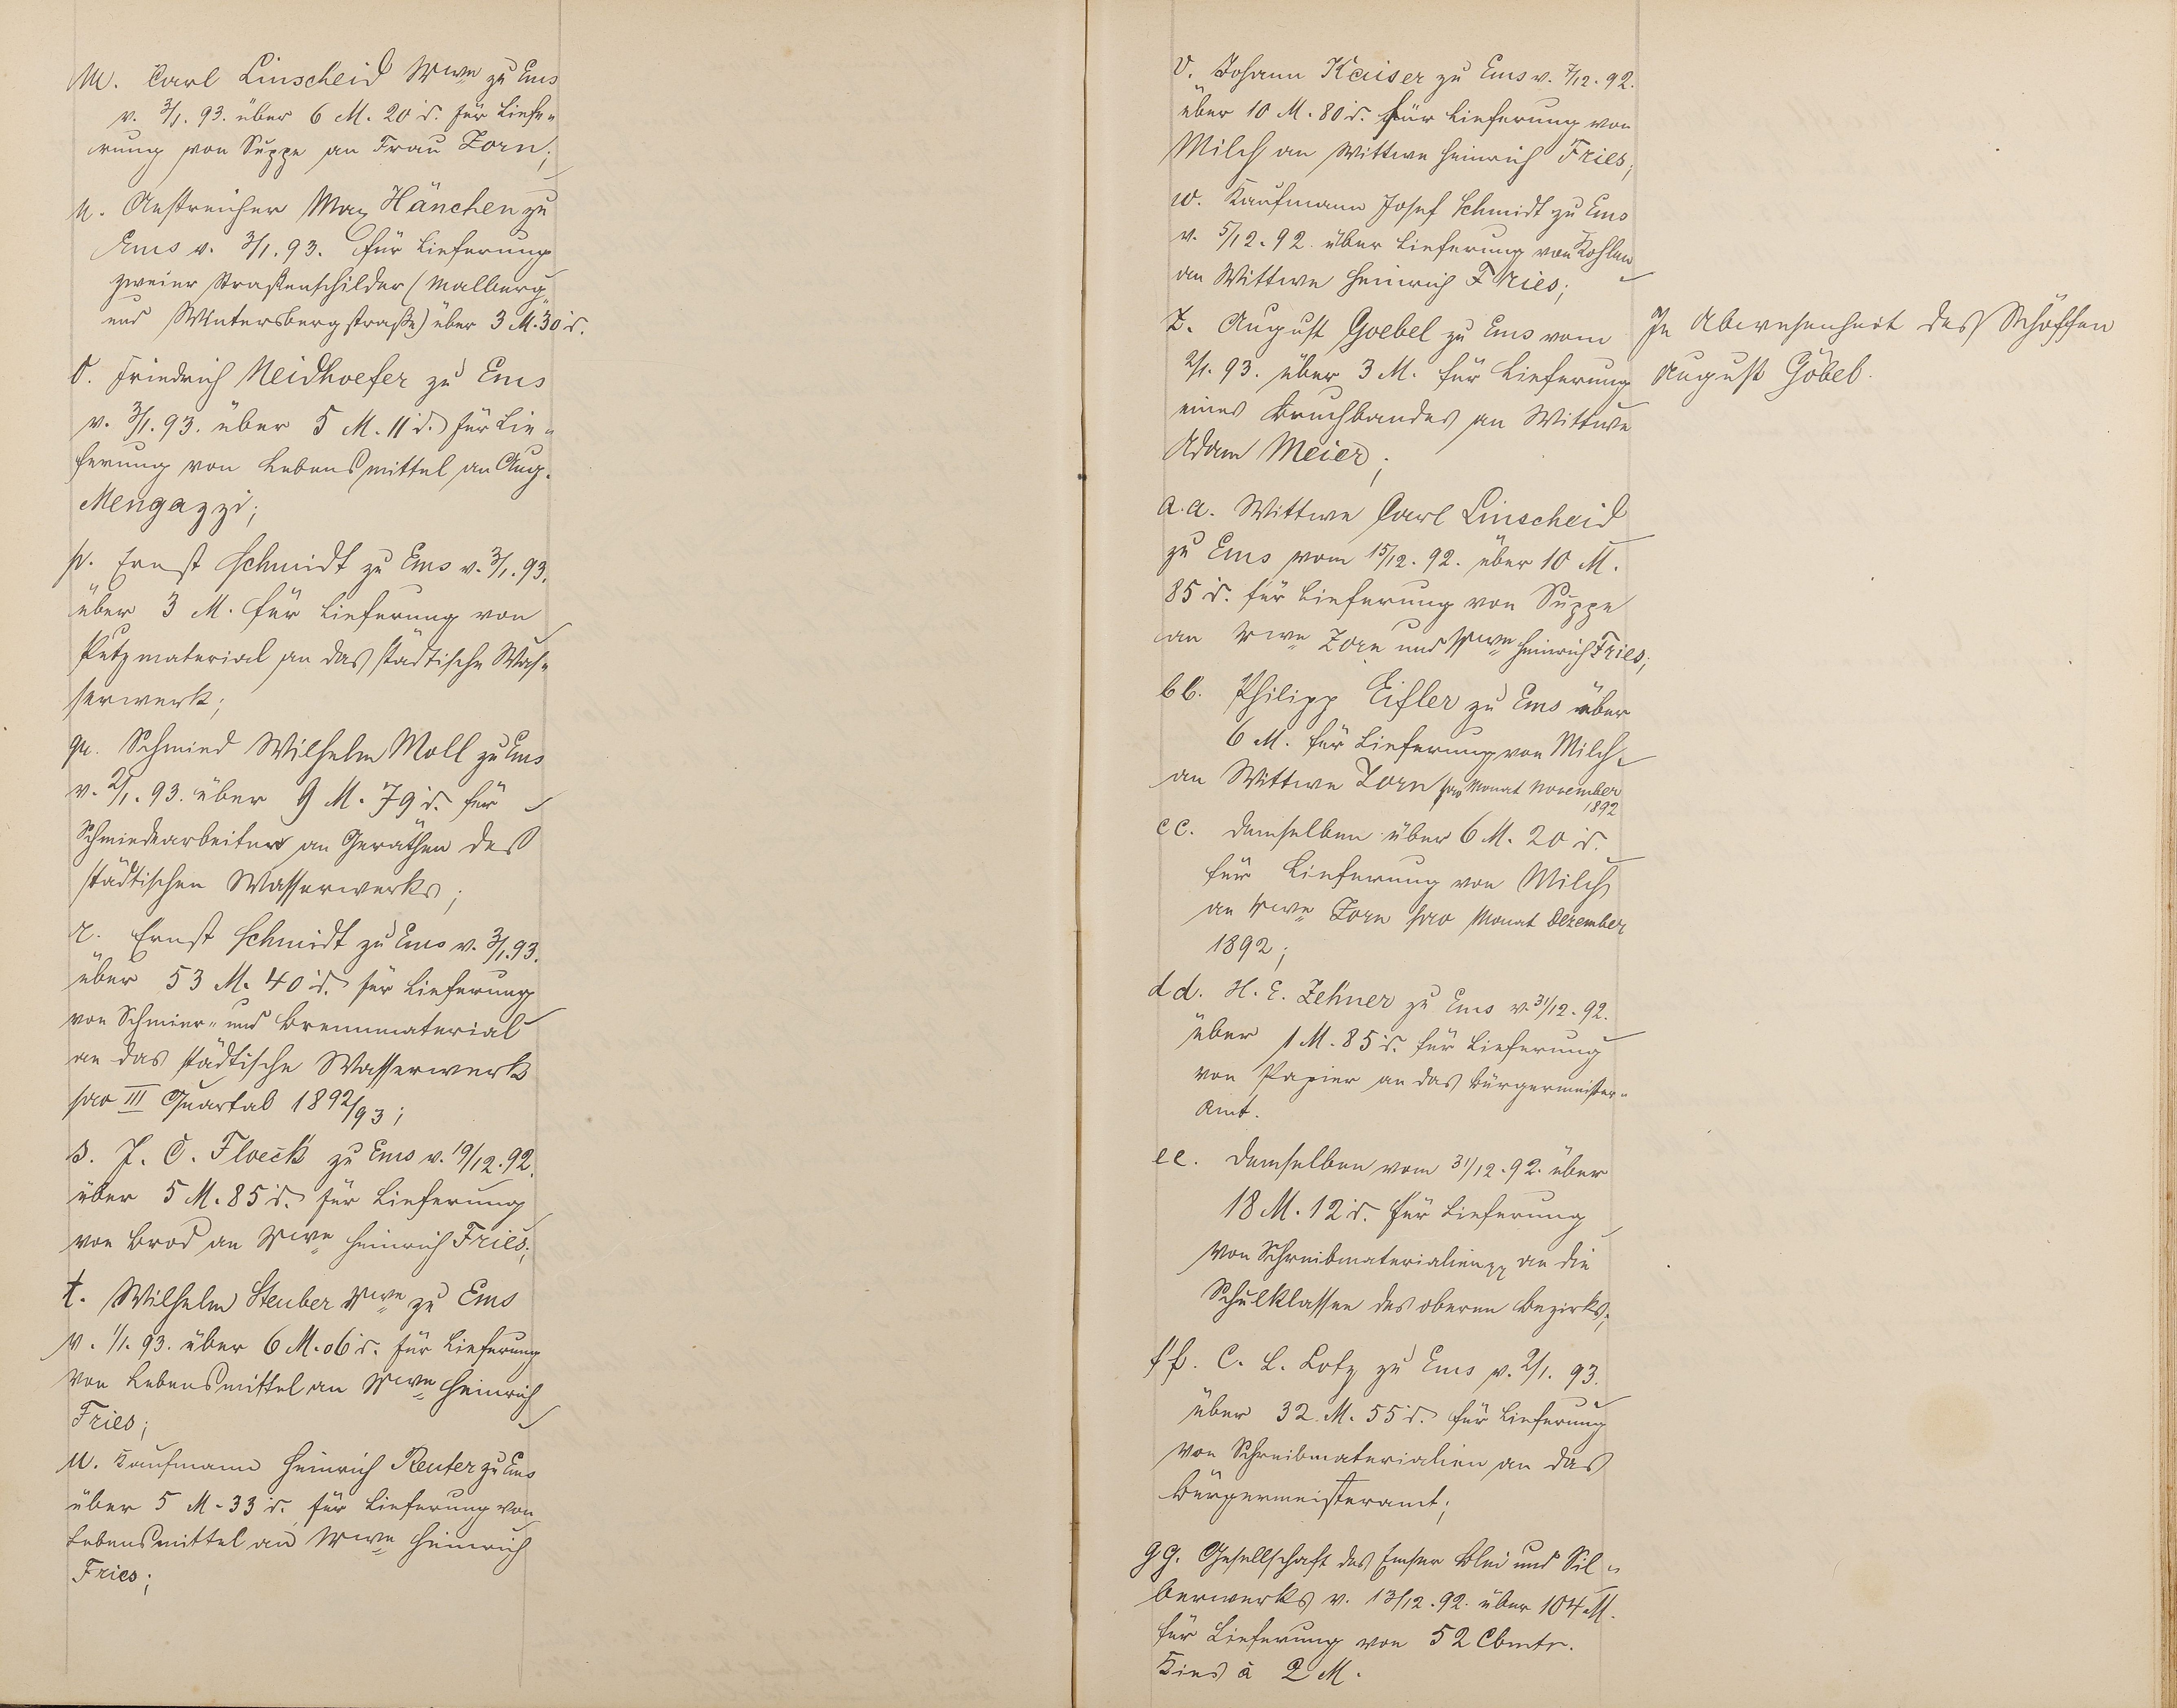 m. Carl Linscheid Wwe zu Ems
v. 3/1. 93. über 6 M. 20 d. für Liefe-
rung von Suppe an Frau Zorn;
n. Anstreicher Max Hänchen zu
Ems v. 3/1. 93. für Lieferung
zweier Straßenschilder (Malberg
und Wintersbergstraße) über 3 M. 30 d.
o. Friedrich Neidhoefer zu Ems
v. 3/1. 93. über 5 M. 11 d. für Lie-
ferung von Lebensmittel an Aug.
Mengazzi;
p. Ernst Schmidt zu Ems v. 3/1. 93.
über 3 M. für Lieferung von
Putzmaterial an das städtische Was-
serwerk;
qu. Schmied Wilhelm Moll zu Ems
v. 2/1. 93. über 9 M. 79 d. für
Schmiedearbeiten an Geräthen des
städtischen Wasserwerks;
r. Ernst Schmidt zu Ems v. 3/1. 93.
über 53 M. 40 d. für Lieferung
von Schmier- und Brennmaterial
an das städtische Wasserwerk
pro III Quartal 1892/93;
s. J. C. Floeck zu Ems v. 19/12. 92.
über 5 M. 85 d. für Lieferung
von Brod an Wwe Heinrich Fries;
t. Wilhelm Steuber Wwe zu Ems
v. 1/1. 93. über 6 M. 06 d. für Lieferung
von Lebensmittel an Wwe Heinrich
Fries;
u. Kaufmann Heinrich Reuter zu Ems
über 5 M. 33 d. für Lieferung von
Lebensmittel an Wwe Heinrich
Fries;
v. Johann Kaiser zu Ems v. 7/12. 92.
über 10 M. 80 d. für Lieferung von
Milch an Wittwe Heinrich Fries;
w. Kaufmann Josef Schmidt zu Ems
v. 5/12. 92. über Lieferung von Kohlen
an Wittwe Heinrich Fries;
z. August Goebel zu Ems vom
2/1. 93. über 3 M. für Lieferung
eines Bruchbandes an Wittwe
Adam Meier;
In Abwesenheit des Schöffen
August Göbel.
a.a. Wittwe Carl Linscheid
zu Ems vom 15/12. 92. über 10 M.
85 d. für Lieferung von Suppe
an Wwe Zorn und Wwe Heinrich Fries;
bb. Philipp Eifler zu Ems über
6 M. für Lieferung von Milch
an Wittwe Zorn pro Monat November
1892
cc. demselben über 6 M. 20 d.
für Lieferung von Milch
an Wwe Zorn pro Monat Dezember
1892;
dd. H. E. Zehner zu Ems v. 31/12. 92.
über 1 M. 85 d. für Lieferung
von Papier an das Bürgermeister-
Amt.
ee. demselben vom 31/12. 92. über
18 M. 12 d. für Lieferung
von Schreibmaterialien pp an die
Schulklassen des oberen Bezirks;
ff. C. L. Lotz zu Ems v. 2/1. 93.
über 32 M. 55 d. für Lieferung
von Schreibmaterialien an das
Bürgermeisteramt;
gg. Gesellschaft des Emser Blei und Sil-
berwerks v. 13/12. 92. über 104 M.
für Lieferung von 52 Cbmtr.
Kies à 2 M.